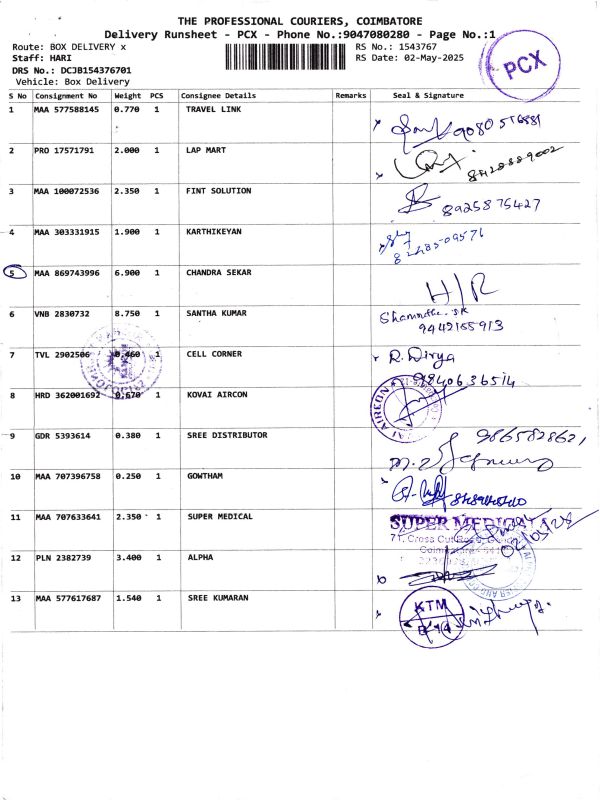 THE PROFESSIONAL COURIERS, COIMBATORE
Delivery Runsheet - PCX - Phone No.:9047080280 - Page No.:1
Route: BOX DELIVERY x
RS No.: 1543767
Staff: HARI
RS Date: 02-May-2025
DRS No.: DCJB154376701
Vehicle: Box Delivery
PCX
S No Consignment No Weight PCS Consignee Details Remarks Seal & Signature
1 MAA 577588145 0.770 1 TRAVEL LINK
2 PRO 17571791 2.000 1 LAP MART
3 MAA 100072536 2.350 1 FINT SOLUTION 8925875427
4 MAA 303331915 1.900 1 KARTHIKEYAN
5 MAA 869743996 6.900 1 CHANDRA SEKAR H/R
6 VNB 2830732 8.750 1 SANTHA KUMAR
9442155913
7 TVL 2902506 0.460 1 CELL CORNER R. Divya
9840636514
8 HRD 362001692 0.670 1 KOVAI AIRCON
9 GDR 5393614 0.380 1 SREE DISTRIBUTOR
10 MAA 707396758 0.250 1 GOWTHAM
11 MAA 707633641 2.350 1 SUPER MEDICAL SUPER MEDICAL
71, Cross Cut Road
12 PLN 2382739 3.400 1 ALPHA
13 MAA 577617687 1.540 1 SREE KUMARAN KTM